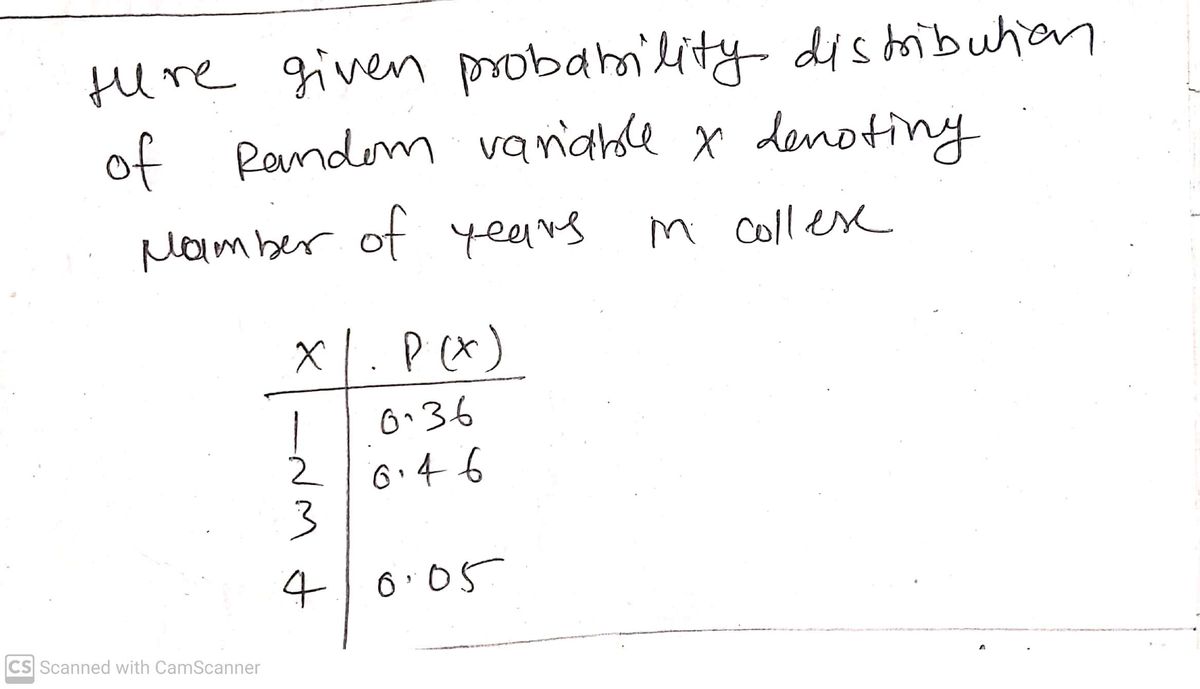 Here given probability distribution
of Random variable x denoting
Number of years in college
X P(x)
1 0.36
2 0.46
3
4 0.05
CS Scanned with CamScanner